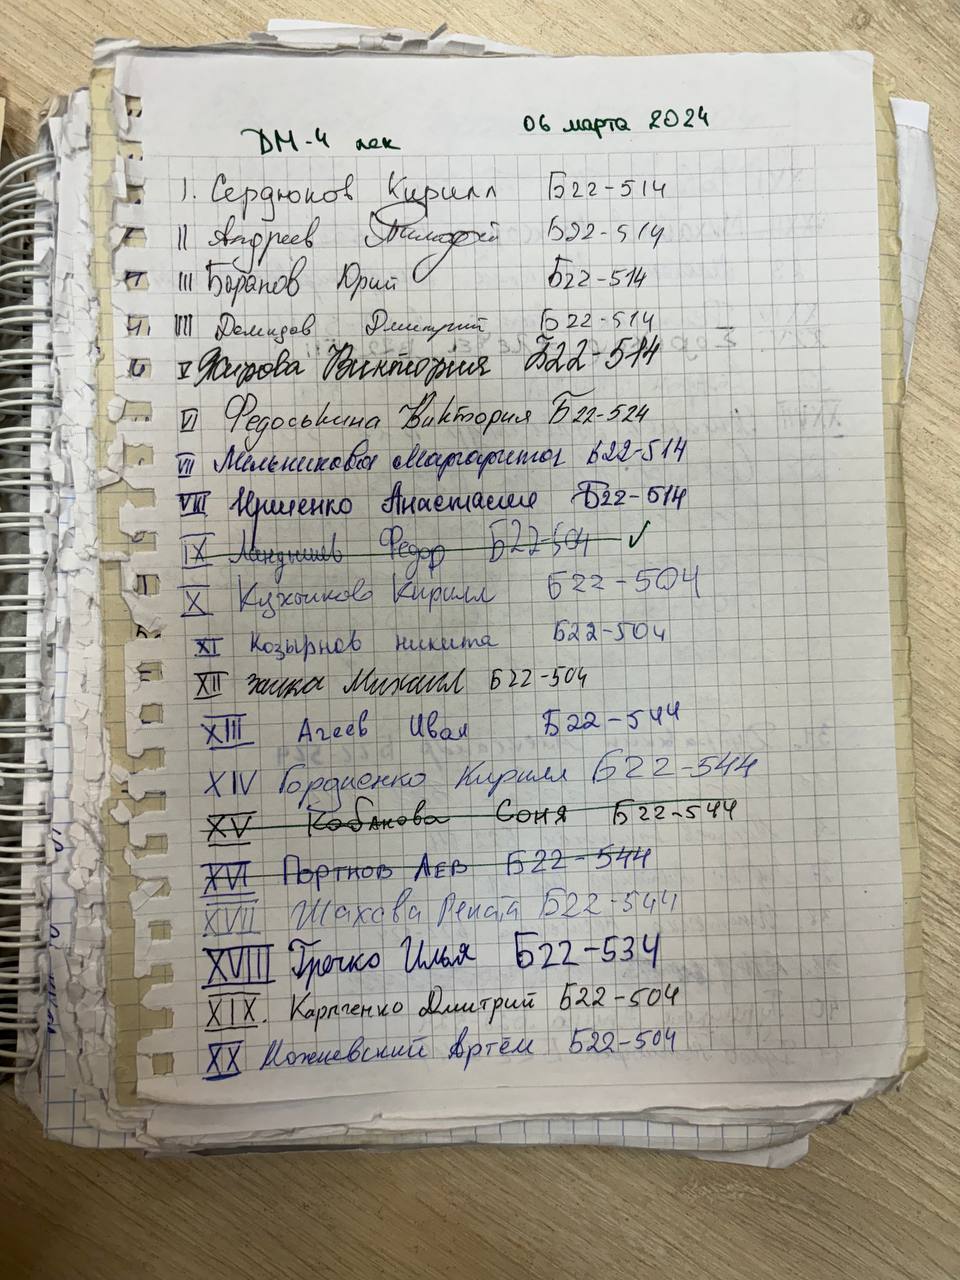 ДМ-4 лек 06 марта 2024
I. Сердюков Кирилл Б22-514
II Андреев Тимофей Б22-514
III Баранов Юрий Б22-514
IIII Демидов Дмитрий Б22-514
V Жирова Виктория Б22-514
VI Федоськина Виктория Б22-524
VII Мельникова Маргарита Б22-514
VIII Ищенко Анастасия Б22-514
IX Ландышев Федор Б22-504 ✓
X Кирилл Б22-504
XI Козырнов никита Б22-504
XII Заика Михаил Б22-504
XIII Агеев Иван Б22-544
XIV Гордиенко Кирилл Б22-544
XV Кабанова Соня Б22-544
XVI Портнов Лев Б22-544
XVII Шахова Рената Б22-544
XVIII Гречко Илья Б22-534
XIX. Карпенко Дмитрий Б22-504
XX Можневский Артём Б22-504